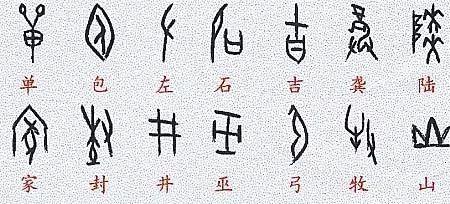 单 包 左 石 吉 龚 陆
家 封 井 巫 弓 牧 山